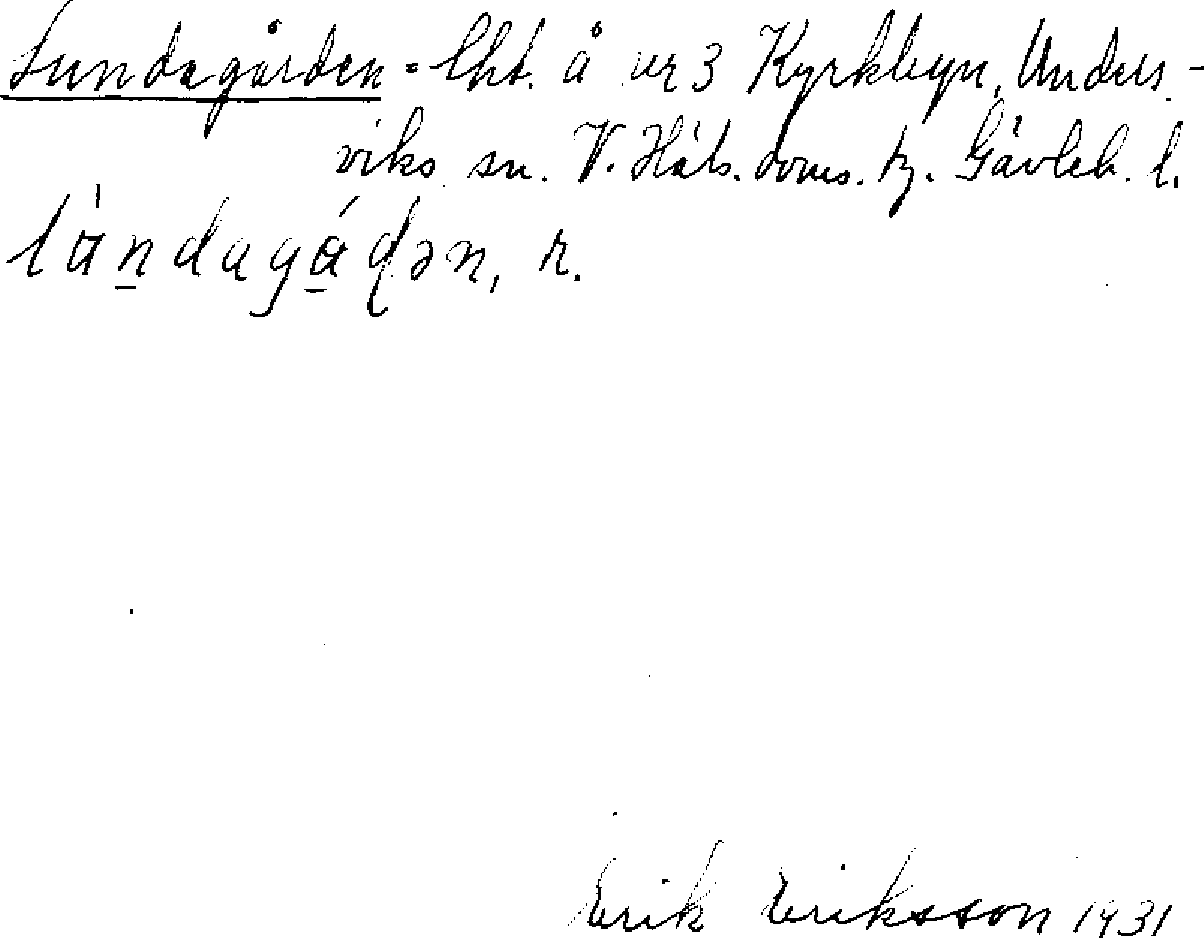 Lundagården = lht. å nr 3 Kyrkbyn, Unders-
viks sn. V. Häls. doms. tg. Gävleb. l.
lὰndagádən, r.
Erik Eriksson 1931